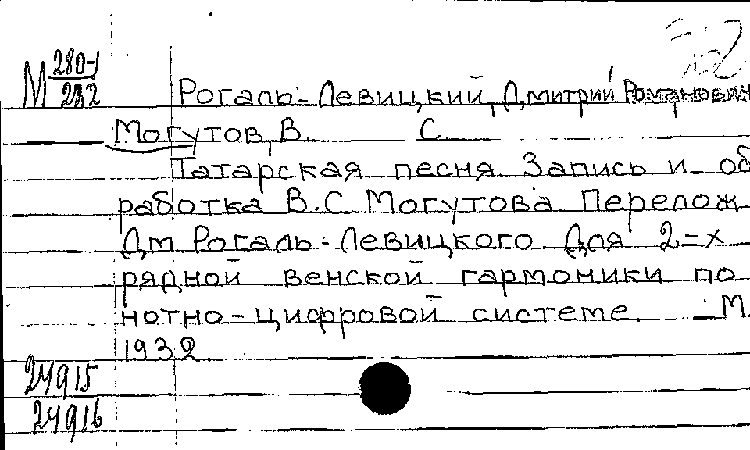 М 280-1
232
Рогаль-Левицкий, Дмитрий Романович
Могутов, В. С.
Татарская песня. Запись и об
работка В.С. Могутова. Перелож
Дм. Рогаль-Левицкого. Для 2=х
рядной венской гармоники по
нотно-цифровой системе. М.
1932
24915
24916